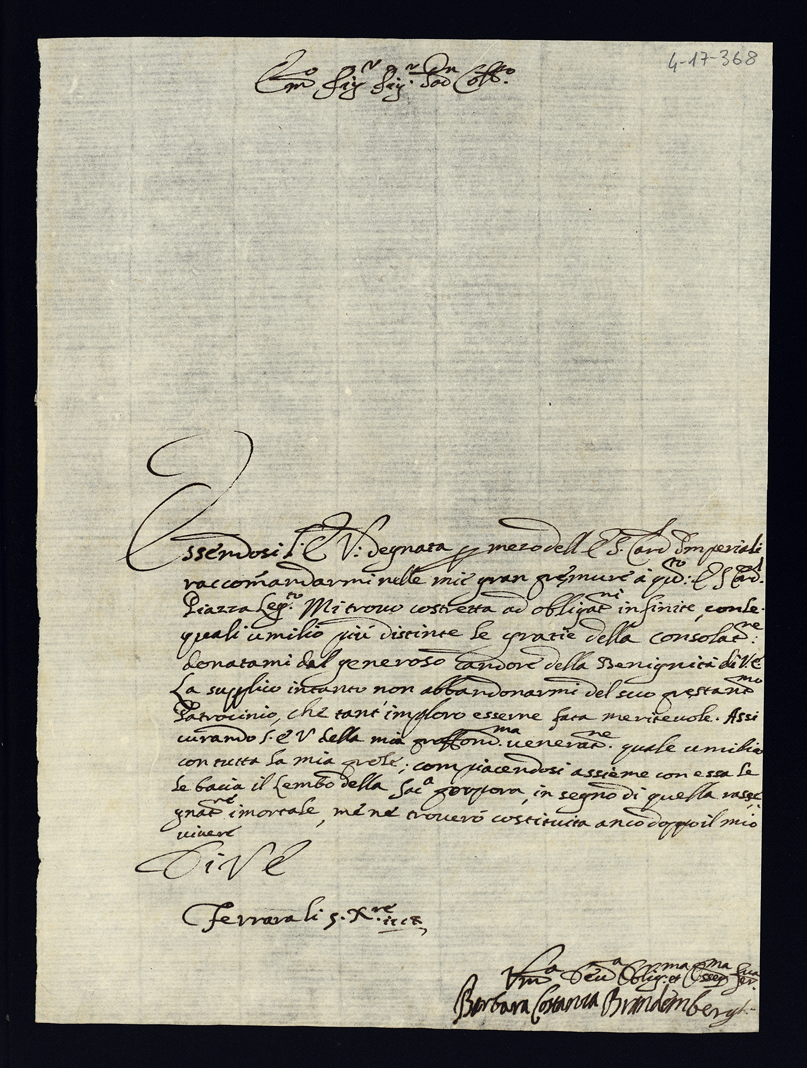 4-17-368
Em.o Sig.r Sig.r Pad.n Coll.mo
Essendosi l'E V: degnata p mezo dell E S. Card Imperiali
raccom̃andarmi nelle mie gran premure à q.to: E S Card.l
Piazza Leg.to Mi trovo costretta ad obligat.ni infinite, con le
quali umilio più distinte le gratie della consolat.ne:
donatami dal generoso candore della Benignità di V.E
La supplico intanto non abbandonarmi del suo prestant.mo
Patrocinio, che tant' imploro esserne fata meritevole. Assi
curando S. E V della mia proffond.ma venerat.ne quale umilio
con tutta la mia prole; compiacendosi assieme con essa le
le bacia il Lembo della Sac.a porpora, in segno di quella rasse
gnat.ne imortale, mé né troveró costituita anco doppo il mio
vivere
Di V E
Ferrara li 5. X.re
Um.a Dev.a Oblig.ma et Osseq.ma Sua Ser.
Barbara Costanza Brandembergh